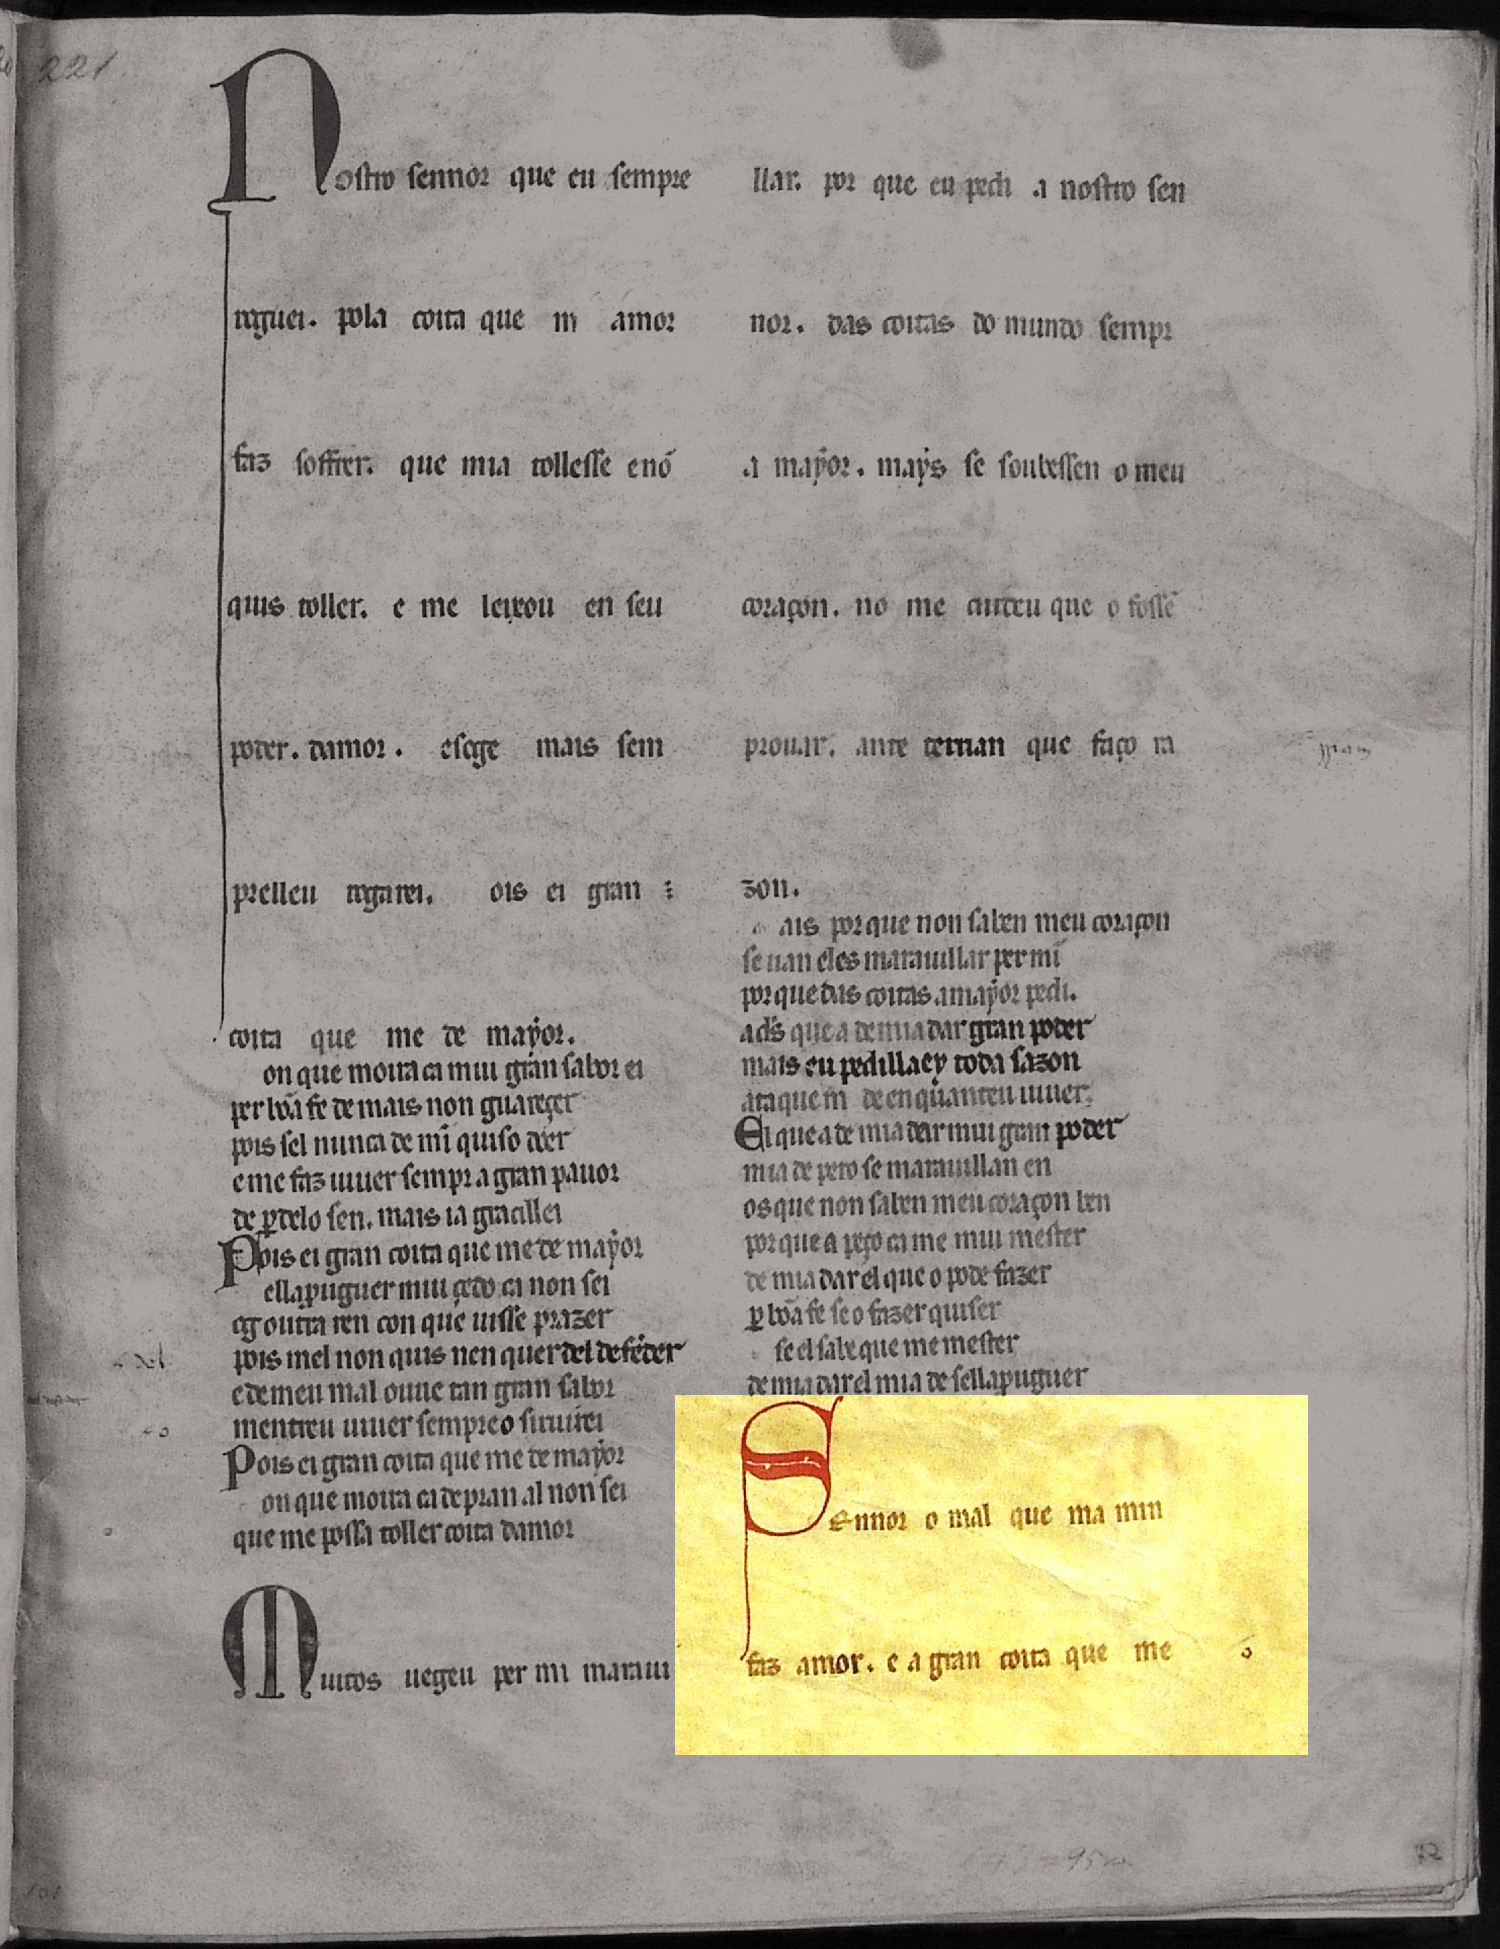 221
Nostro sennor que eu sempre
roguei. pola coita que m amor
faz soffrer. que mia tollesse e nõ
quis toller. e me leixou en seu
poder. damor. e sege mais sem
prelleu rogarei. ois ei gran
coita que me de mayor.
on que moira ca mui gran sabor ei
per bõa fe de mais non guareçer
pois sel nunca de mĩ quiso doer
e me faz uiuer sempr a gran pauor
de ꝑdelo sen. mais ia graçillei
Pois ei gran coita que me de mayor
ellaprouguer mui çedo ca non sei
og outra ren con que uisse prazer
pois mel non quis nen quer del defẽder
e de meu mal ouue tan gran sabor
mentreu uiuer sempreo siruirei
Pois ei gran coita que me de mayor
on que moira ca de pran al non sei
que me possa toller coita damor
Muitos uegeu per mi marau
llar. por que eu pedi a nostro sen
nor. das coitas do mundo sempr
a mayor. mays se soubessen o meu
coraçon. no me cuideu que o fossẽ
prouar. ante terrian que faço ra
zon.
ais por que non saben meu coraçon
se uan eles marauillar per mĩ
por que das coitas a mayor pedi.
a ds̃ que a de mia dar gran poder
mais eu pedillaey toda sazon
ata que m de enquanteu uiuer.
El que a de mia dar mui gran poder
mia de pero se marauillan en
os que non saben meu coraçon ben
por que a peço ca me mui mester
de mia dar el que o pode fazer
ꝑ bõa fe se o fazer quiser
se el sabe que me mester
de mia dar el mia de sellaprouguer
Sennor o mal que ma min
faz amor. e a gran coita que me
72